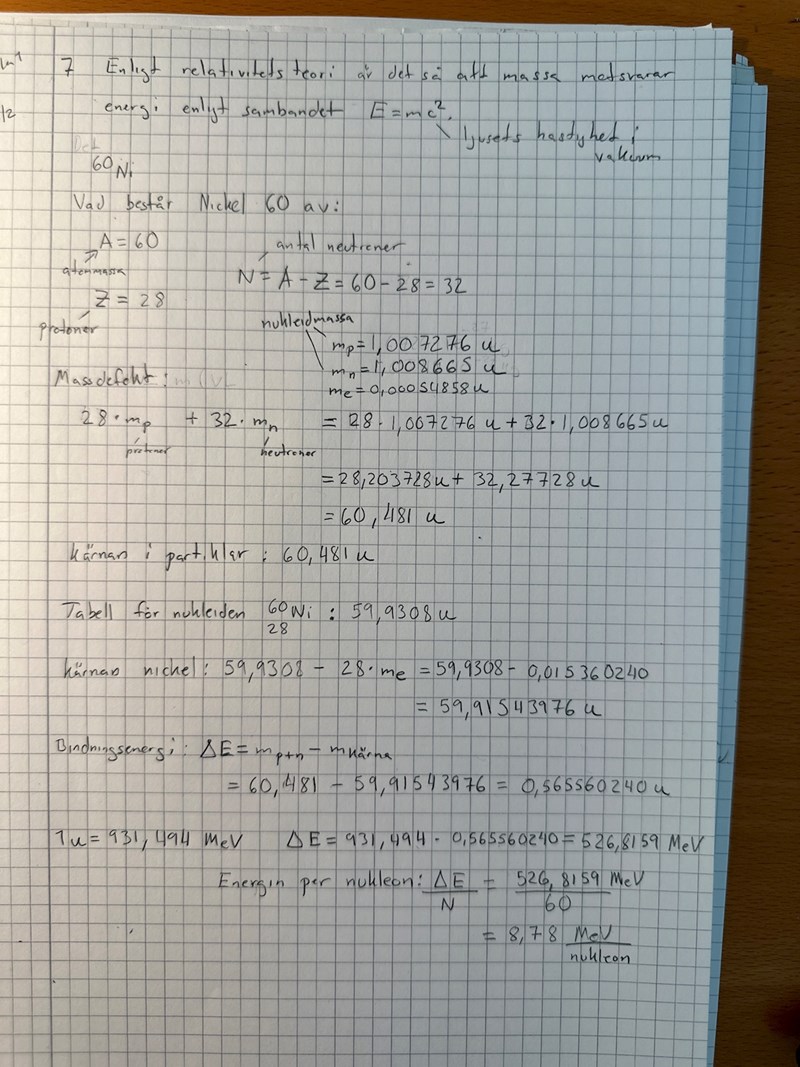 7 Enligt relativitets teori är det så att massa motsvarar
energi enligt sambandet E = mc².
ljusets hastyhet i
vakuum
60 Ni
Vad består Nickel 60 av:
A = 60
atommassa
antal neutroner
N = A - Z = 60 - 28 = 32
Z = 28
protoner
nukleidmassa
mp = 1,007276 u
mn = 1,008665 u
me = 0,00054858 u
Massdefekt:
28 · mp + 32 · mn = 28 · 1,007276 u + 32 · 1,008665 u
protoner neutroner
= 28,203728u + 32,27728u
= 60,481 u
Kärnan i partiklar : 60,481 u
Tabell för nukleiden 60 28 Ni : 59,9308 u
Kärnan nickel: 59,9308 - 28 · me = 59,9308 - 0,015360240
= 59,91543976 u
Bindningsenergi: ΔE = mp+n - mkärna
= 60,481 - 59,91543976 = 0,565560240 u
1u = 931,494 MeV ΔE = 931,494 · 0,565560240 = 526,8159 MeV
Energin per nukleon: ΔE/N = 526,8159 MeV/60
= 8,78 MeV/nukleon